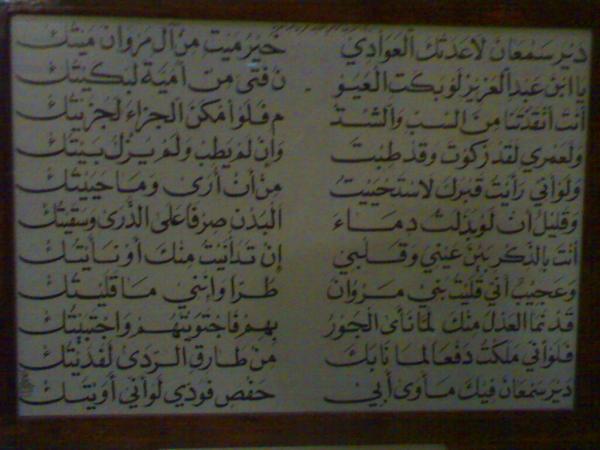 دير سمعان لا عدتك العوادي خير ميت من آل مروان ميتك
يا ابن عبد العزيز لو بكت العيو ن فتى من أمية لبكيتك
أنت أنقذتنا من السب والشتـ م فلو أمكن الجزاء لجزيتك
ولعمري لقد زكوت وقد طبت وإن لم يطب ولم يزك بيتك
ولو أني رأيت قبرك لاستحييت من أن أرى وما حييتك
وقليل أن لو بذلت دماء البدن صرفا على الذرى وسقيتك
أنت بالذكر بين عيني وقلبي إن تدانيت منك أو نأيتك
وعجيب أني قليت بني مروان طرا وإنني ما قليتك
قد نما العدل منك لما نأى الجور بهم فاجتويتهم واجتبيتك
فلو أني ملكت دفعا لما نابك من طارق الردى لفديتك
دير سمعان فيك مأوى أبي حفص فودي لو أني أويتك